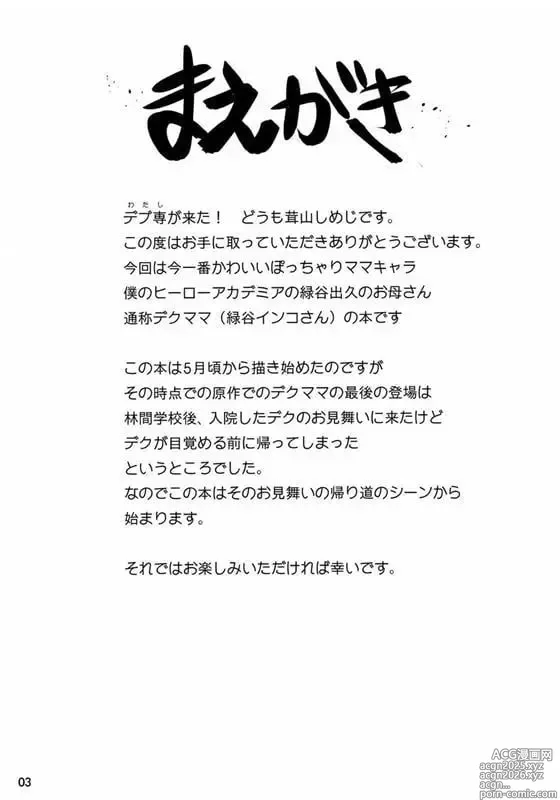 まえがき
わたし
デブ専が来た！　どうも茸山しめじです。
この度はお手に取っていただきありがとうございます。
今回は今一番かわいいぽっちゃりママキャラ
僕のヒーローアカデミアの緑谷出久のお母さん
通称デクママ（緑谷インコさん）の本です
この本は5月頃から描き始めたのですが
その時点での原作でのデクママの最後の登場は
林間学校後、入院したデクのお見舞いに来たけど
デクが目覚める前に帰ってしまった
というところでした。
なのでこの本はそのお見舞いの帰り道のシーンから
始まります。
それではお楽しみいただければ幸いです。
03
ACG漫画网
acgn2025.xyz
acgn2026.xyz
acgn...
porn-comic.com